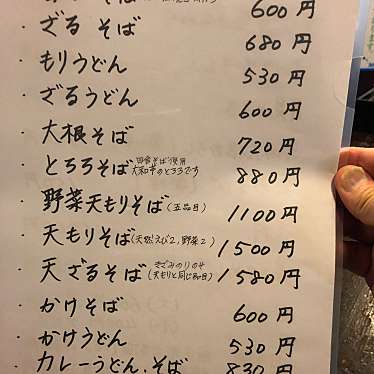 600円
・ざる そば 680円
・もりうどん 530円
・ざるうどん 600円
・大根そば 720円
・とろろそば 田舎そば使用 大和芋のとろろです 880円
・野菜天もりそば(五品目) 1100円
・天もりそば(天然えび2,野菜2) 1500円
・天ざるそば きざみのりのせ (天もりと同じ品目) 1580円
・かけそば 600円
・かけうどん 530円
・カレーうどん.そば 830円